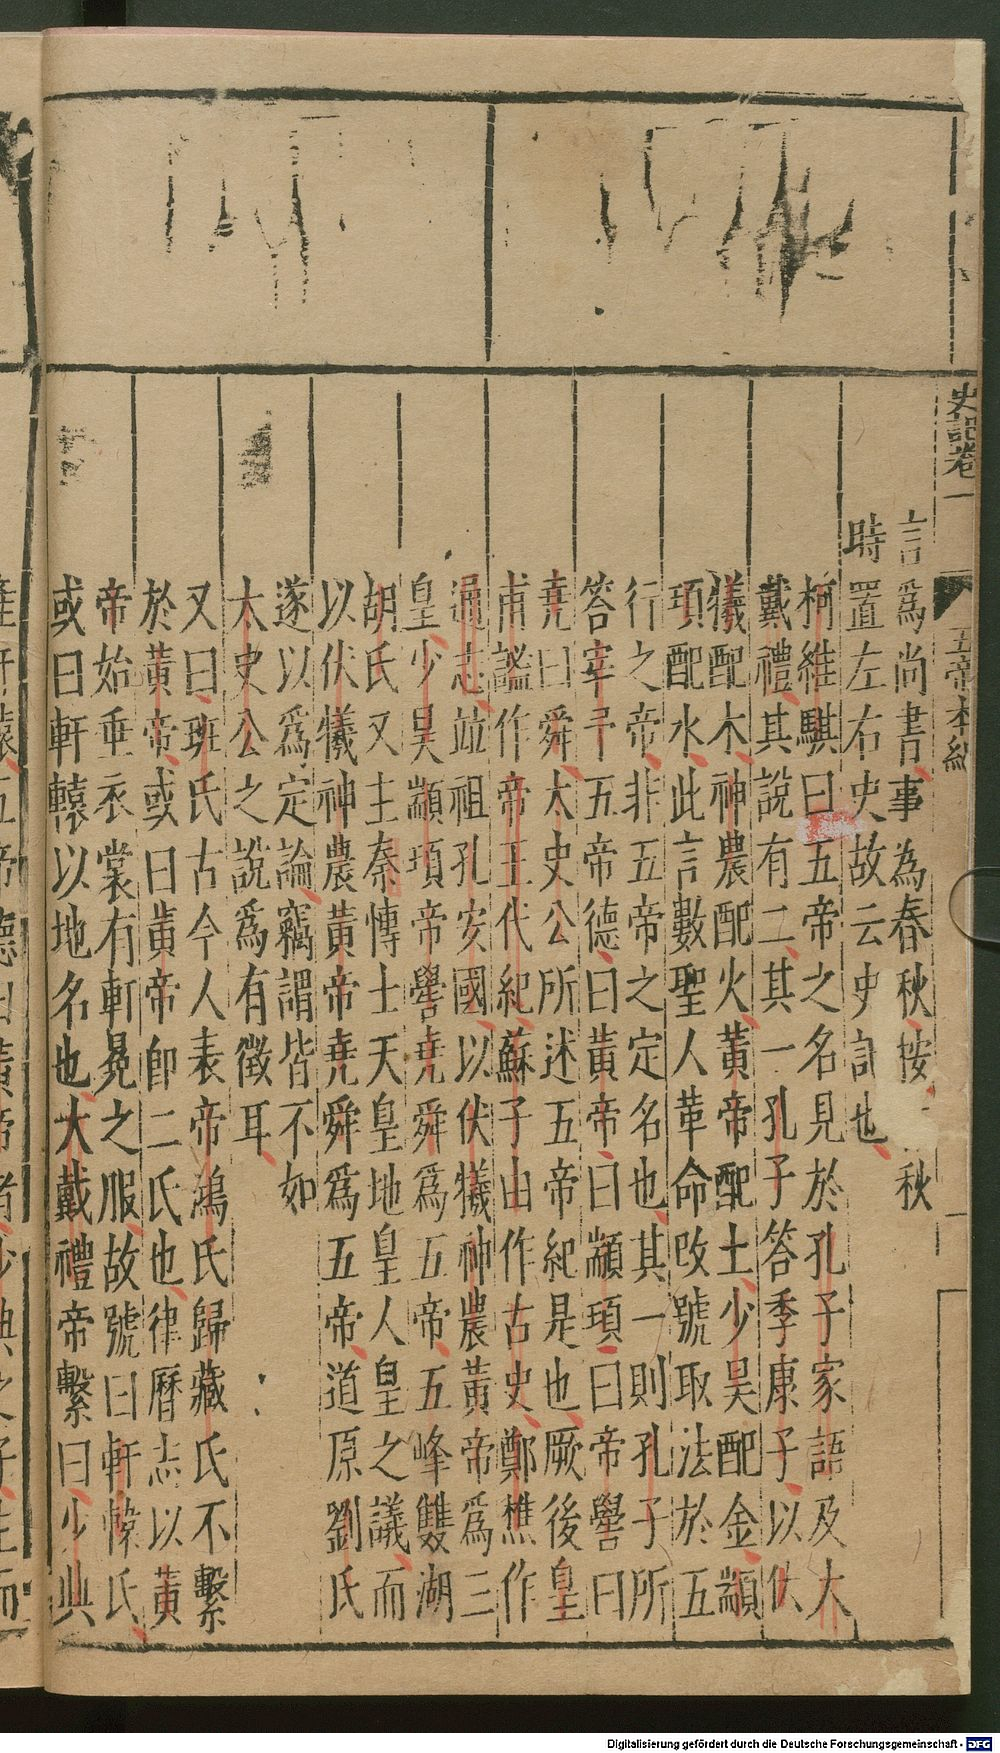 史記卷一
五帝本紀
言爲尚書事為春秋按秋
時置左右史故云史記也
柯維騏曰五帝之名見於孔子家語及大
戴禮其說有二其一孔子答季康子以伏
犧配木神農配火黃帝配土少昊配金顓
頊配水此言數聖人革命改號取法於五
行之帝非五帝之定名也其一則孔子所
答宰予五帝德曰黃帝曰顓頊曰帝嚳曰
堯曰舜太史公所述五帝紀是也厥後皇
甫謐作帝王代紀蘇子由作古史鄭樵作
通志竝祖孔安國以伏犧神農黃帝爲三
皇少昊顓頊帝嚳堯舜爲五帝五峰雙湖
胡氏又主秦博士天皇地皇人皇之議而
以伏犧神農黃帝堯舜爲五帝道原劉氏
遂以爲定論竊謂皆不如
太史公之說爲有徵耳
又曰班氏古今人表帝鴻氏歸藏氏不繫
於黃帝或曰黃帝卽二氏也律曆志以黃
帝始垂衣裳有軒冕之服故號曰軒轅氏
或曰軒轅以地名也大戴禮帝繫曰少典
Digitalisierung gefördert durch die Deutsche Forschungsgemeinschaft - DFG